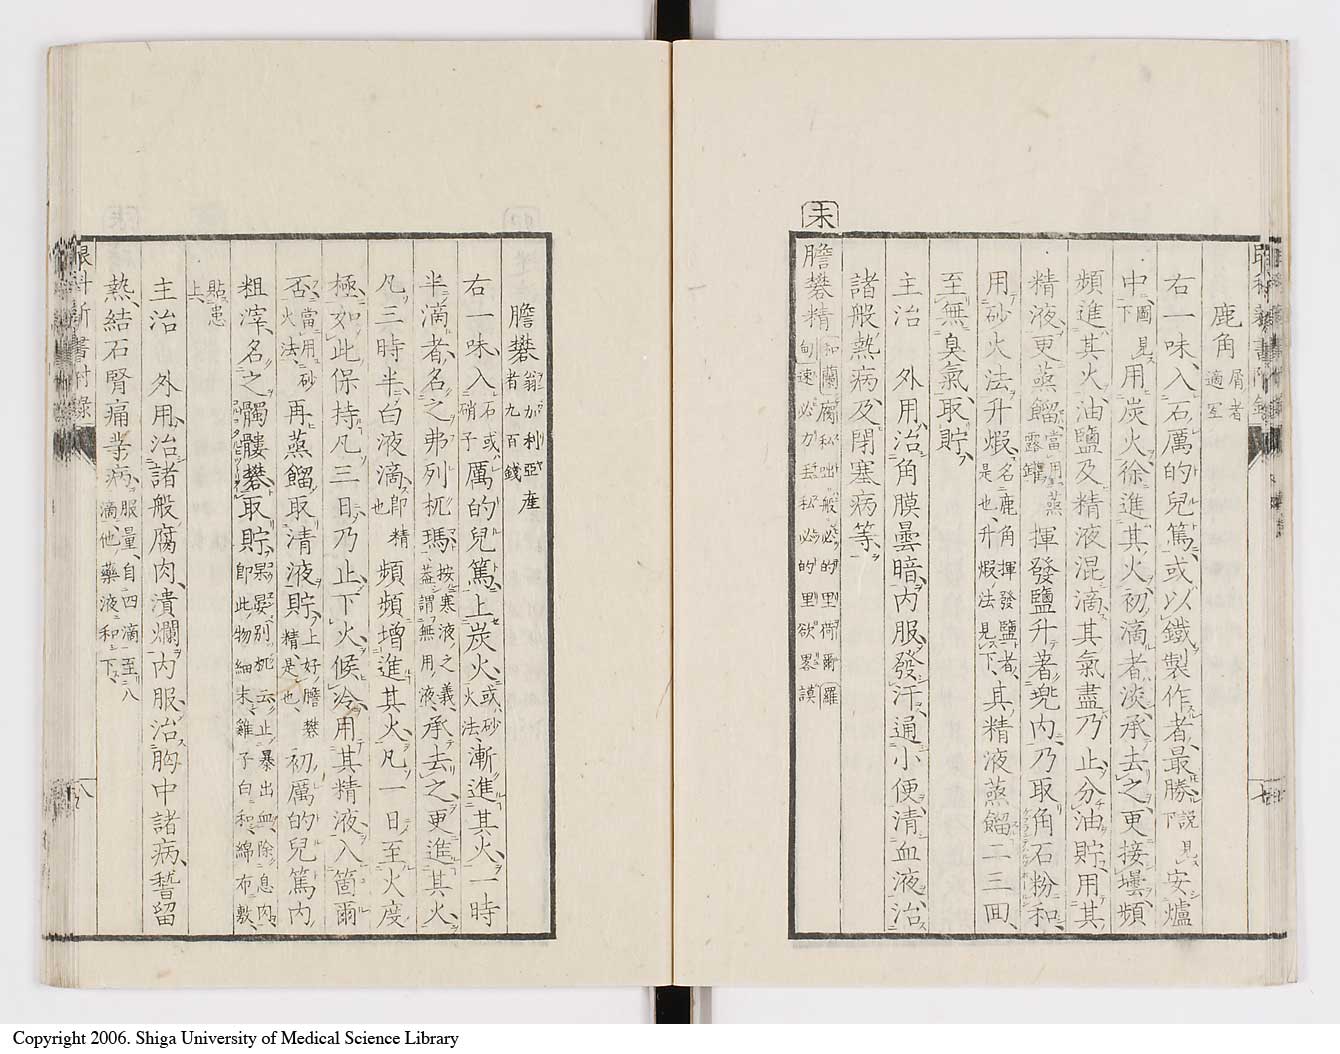 鹿角 屑者適宜
右一味、入石厲的兒篤、或以鐵製作者、最勝、説見下安爐
中、圖見下用炭火、徐進其火、初滴者淡、承去之、更接壜、頻
頻進其火、油鹽及精液混滴、其氣盡乃止、分油貯、用其
精液、更蒸餾、當用蒸露罐揮發鹽升著兜内、乃取角石粉和、
用砂火法升煆、名鹿角揮發鹽者、是也、升煆法見下、其精液蒸餾二三回、
至無臭氣、取貯、
主治 外用、治角膜曇暗、内服、發汗、通小便、清血液、治
諸般熱病、及閉塞病等、
未
膽礬精
膽礬 翁加利亞産者九百錢
右一味、入石或硝子厲的兒篤、上炭火、或砂火法、漸進其火、一時
半滴者、名之弗列抳瑪、按寒液之義、蓋謂無用液、承去之、更進其火、
凡三時半、白液滴、即精也頻頻増進其火、凡一日至火度
極、如此保持凡三日、乃止、下火候冷、用其精液、入箇爾
否、當用砂火法、再蒸餾取清液貯、上好膽礬精、是也、初厲的兒篤内
粗滓、名之髑髏礬、取貯、即此物細末、雞子白和、綿布敷
貼患上、
主治 外用、治諸般腐肉、潰爛、内服、治胸中諸病、稽留
熱、結石腎痛等病、服量、自四滴至八滴、他藥液和下、
眼科新書附録
八
Copyright 2006. Shiga University of Medical Science Library